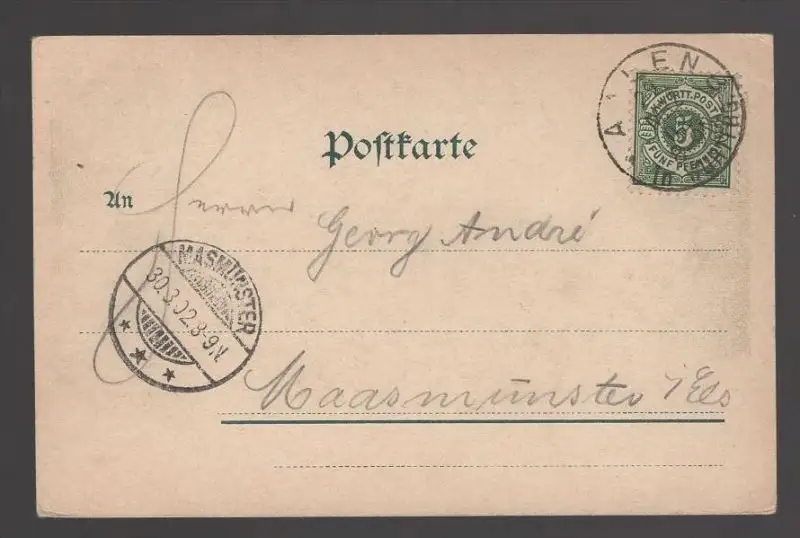 AALEN
K.WÜRTT.POST
5
FÜNF PFENNIG
Postkarte
An Herrn
Georg André
MASMÜNSTER
30.3.02.8-9.N.
Maasmünster i/Els